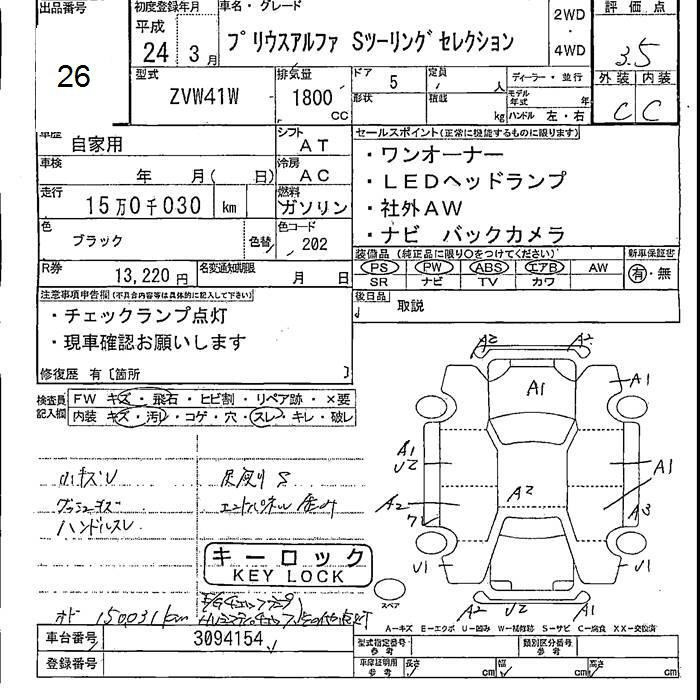 出品番号
26
初度登録年月
平成
24年 3月
車名・グレード
プリウスアルファ Sツーリングセレクション
2WD
・
4WD
評価点
3.5
型式
ZVW41W
排気量
1800
CC
ドア 5
形状
定員 人
積載 kg
ディーラー・並行
モデル年式 年
ハンドル 左・右
外装 内装
C C
車歴 自家用
シフト AT
車検 年 月( 日)
冷房 AC
走行 15万0千030 km
燃料 ガソリン
色 ブラック
色替
色コード 202
R券 13,220円
名変通知期限 月 日
セールスポイント(正常に機能するものに限ります)
・ワンオーナー
・LEDヘッドランプ
・社外AW
・ナビ バックカメラ
装備品(純正品に限り○をつけてください)
新車保証書
PS PW ABS エアB AW
SR ナビ TV カワ
有・無
後日品 取説
注意事項申告欄(不具合内容等は具体的に記入して下さい)
・チェックランプ点灯
・現車確認お願いします
修復歴 有〔箇所 〕
検査員記入欄
FW キズ・飛石・ヒビ割・リペア跡・×要
内装 キズ・汚レ・コゲ・穴・スレ・キレ・破レ
小キズU
ハンドルスレ
キーロック
KEY LOCK
オド 150031km
車台番号 3094154
登録番号
A2 A2
A1
A1
A1
U2
A1
A2
A2
A3
U1
U1
A2 U2 A1
スペア
A―キズ E―エクボ U―凹み W―補修跡 S―サビ C―腐食 XX―交換済
型式指定番号 参考
類別区分番号 参考
車庫証明用 参考
長さ cm
幅 cm
高さ cm